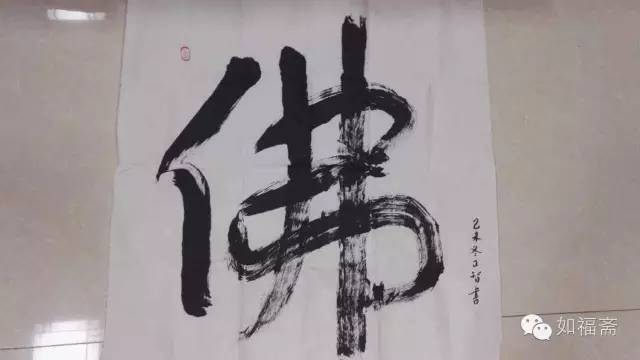 佛
乙未冬正智書
如福斋